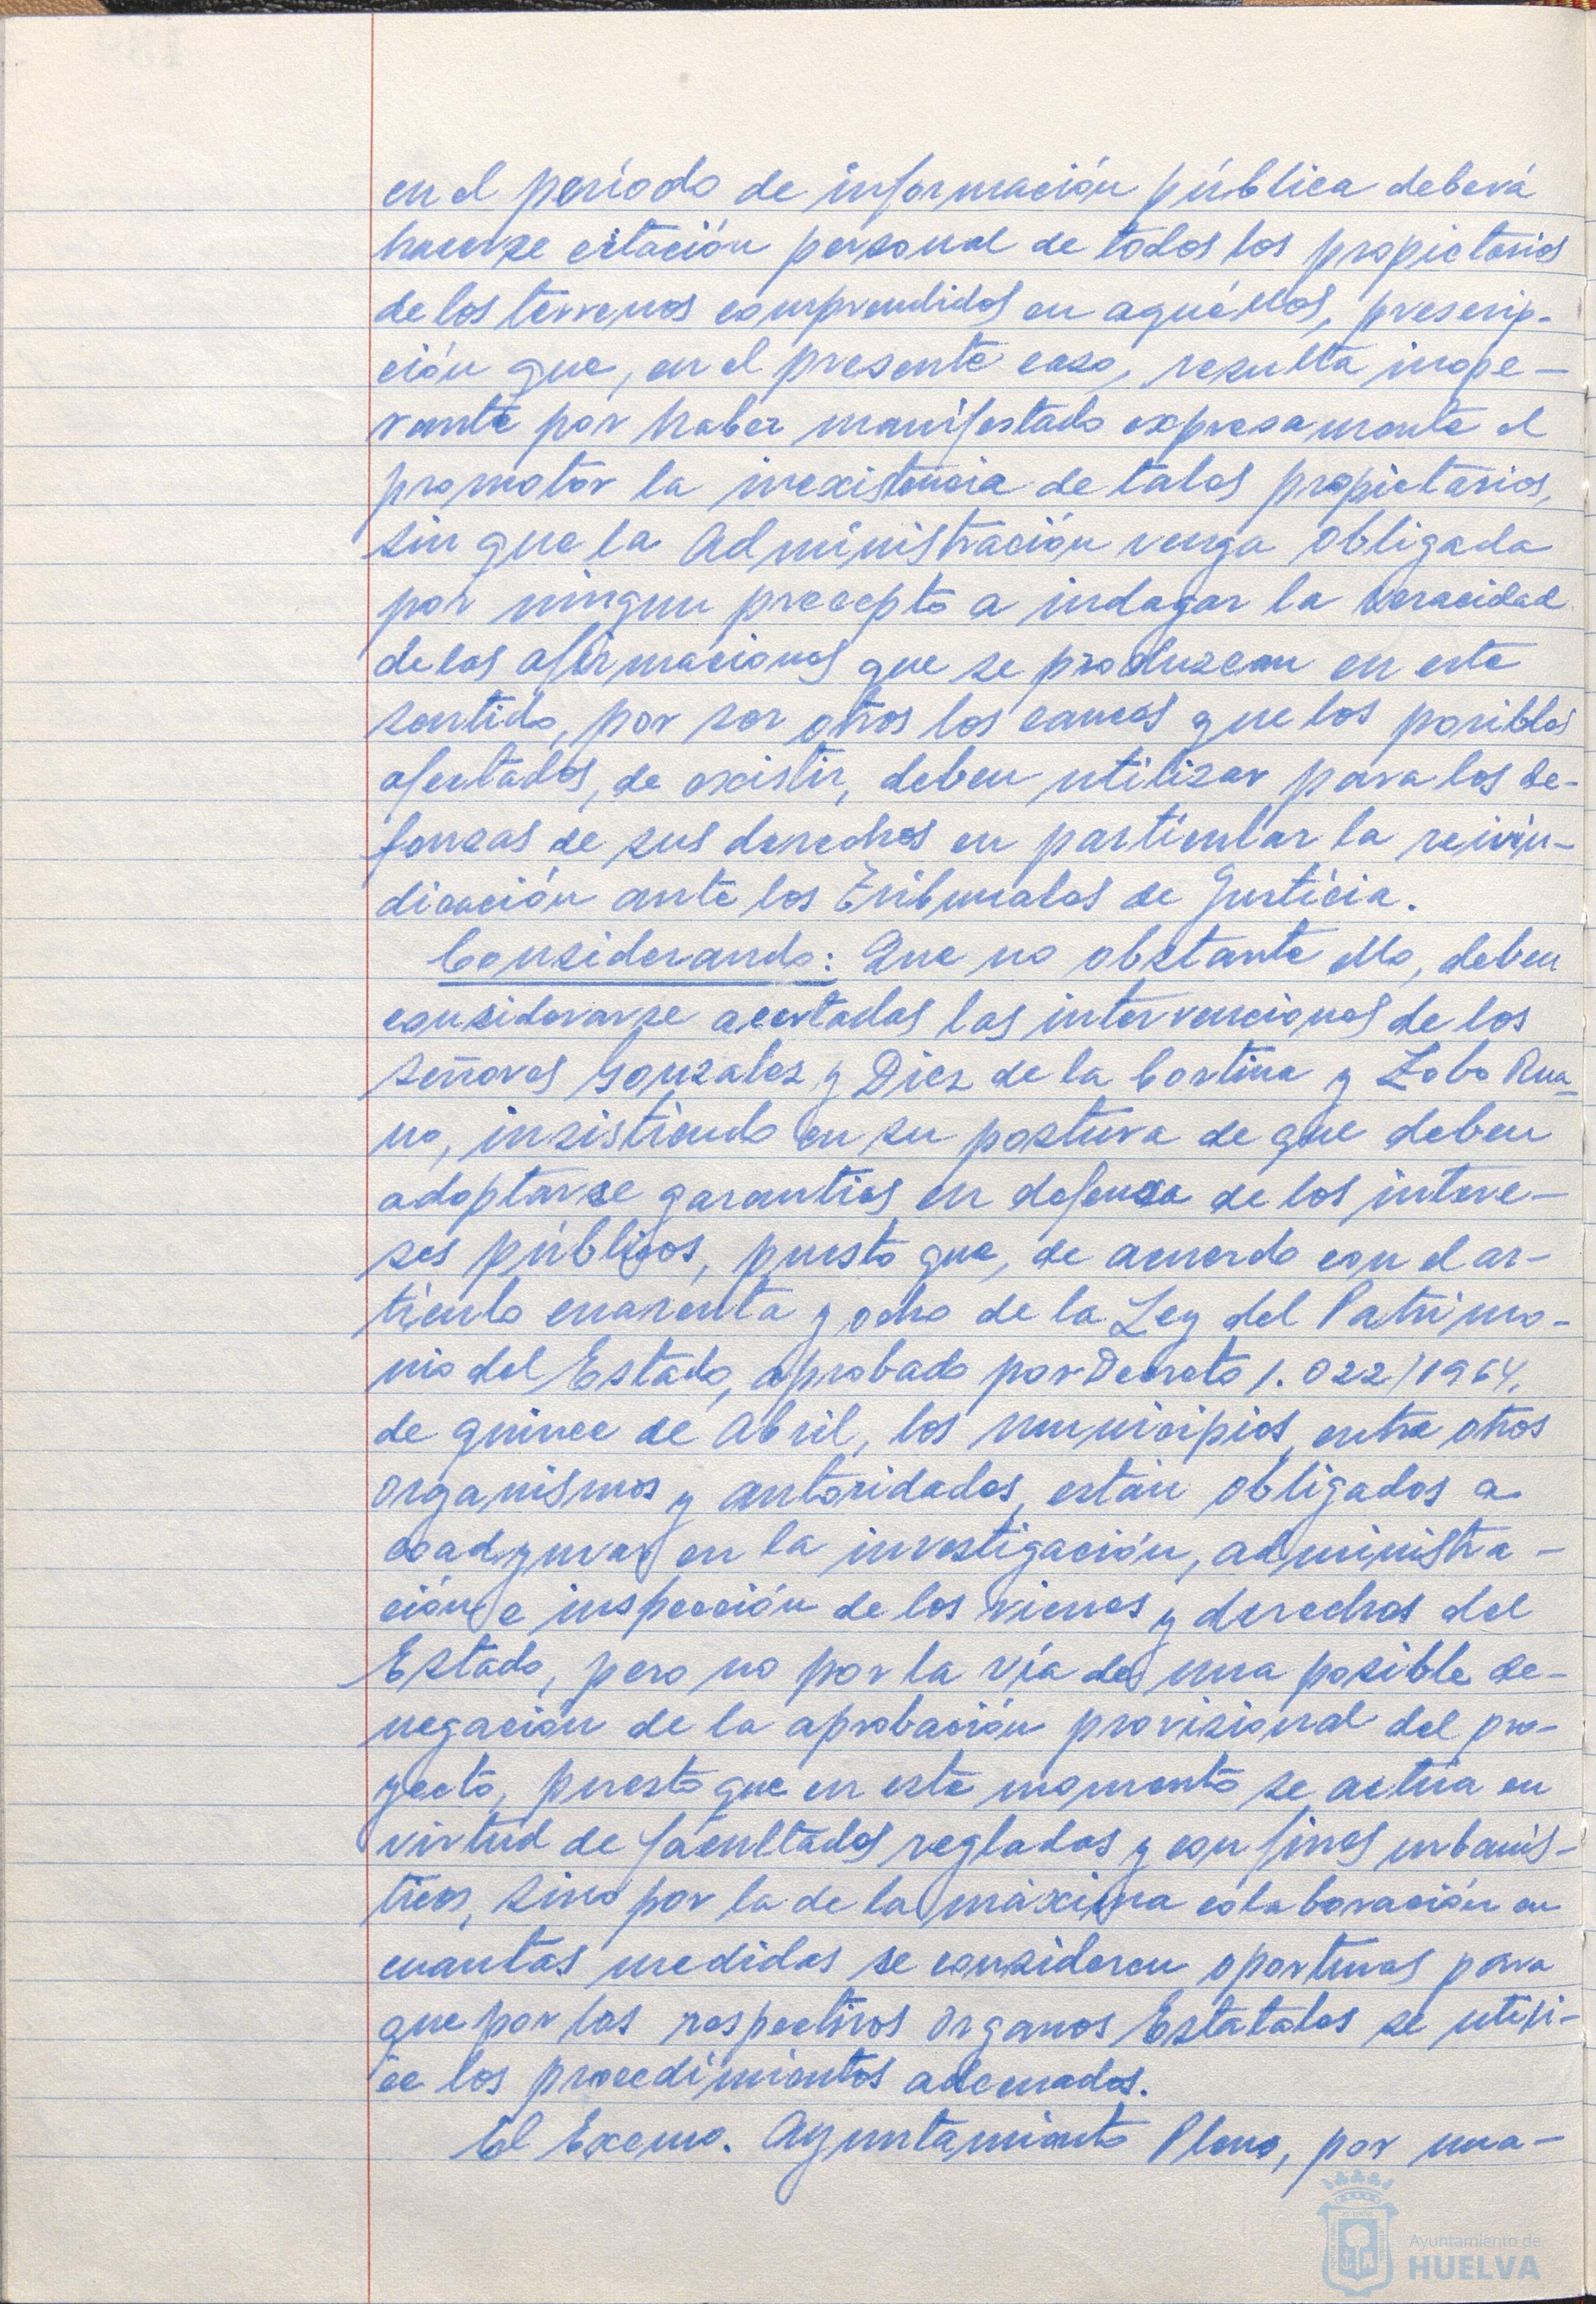 en el período de información pública deberá
hacerse citación personal de todos los propietarios
de los terrenos comprendidos en aquéllos, prescrip-
ción que, en el presente caso, resulta inope-
rante por haber manifestado expresamente el
promotor la inexistencia de tales propietarios,
sin que la Administración venga obligada
por ningun precepto a indagar la veracidad
de las afirmaciones que se produzcan en este
sentido, por ser otros los cauces que los posibles
afectados, de existir, deben utilizar para los de-
fensas de sus derechos en particular la reivin-
dicación ante los Tribunales de Justicia.
Considerando: Que no obstante ello, deben
considerarse acertadas las intervenciones de los
señores Gonzalez y Diez de la Cortina y Lobo Rua-
no, insistiendo en su postura de que deben
adoptarse garantias en defensa de los intere-
ses públicos, puesto que, de acuerdo con el ar-
ticulo cuarenta y ocho de la Ley del Patrimo-
nio del Estado, aprobado por Decreto 1.022/1964,
de quince de Abril, los municipios, entre otros
organismos y autoridades, están obligados a
coadyuvar en la investigación, administra-
ción e inspección de los vienes y derechos del
Estado, pero no por la vía de una posible de-
negación de la aprobación provisional del pro-
yecto, puesto que en este momento se actúa en
virtud de facultades regladas y con fines urbanís-
ticos, sino por la de la máxima colaboración en
cuantas medidas se consideren oportunas para
que por los respectivos organos Estatales se utili-
ce los procedimientos adecuados.
El Excmo. Ayuntamiento Pleno, por una-
Ayuntamiento de
HUELVA